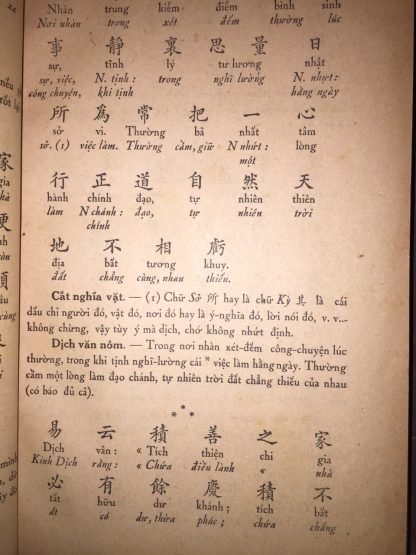 Nhàn trung kiểm điểm bình sinh
Nơi nhàn trong xét đếm thường lúc
事 靜 裏 思 量 日
sự, tĩnh lý tư lương nhật
sự, việc, N. tịnh: trong nghĩ lường N. nhựt:
công chuyện, khi tịnh hằng ngày
所 為 常 把 一 心
sở vi. Thường bả nhất tâm
sở. (1) việc làm. Thường cầm, giữ N nhứt: lòng
một
行 正 道 自 然 天
hành chính đạo, tự nhiên thiên
làm N chánh: đạo, tự nhiên trời
chính
地 不 相 虧
địa bất tương khuy.
đất chẳng cùng, nhau thiếu.
Cắt nghĩa vặt. — (1) Chữ Sở 所 hay là chữ Kỳ 其 là cái
dấu chỉ người đó, vật đó, nơi đó hay là ý-nghĩa đó, lời nói đó, v. v...
không chừng, vậy tùy ý mà dịch, chớ không nhứt định.
Dịch văn nôm. — Trong nơi nhàn xét-đếm công-chuyện lúc
thường, trong khi tịnh nghĩ-lường cái * việc làm hằng ngày. Thường
cầm một lòng làm đạo chánh, tự nhiên trời đất chẳng thiếu của nhau
(có báo đủ cả).
* * *
易 云 積 善 之 家
Dịch vân: « Tích thiện chi gia
Kinh Dịch rằng: « Chứa điều lành « nhà
必 有 餘 慶 積 不
tất hữu dư khánh; tích bất
ắt có dư, thừa phúc; chứa chẳng